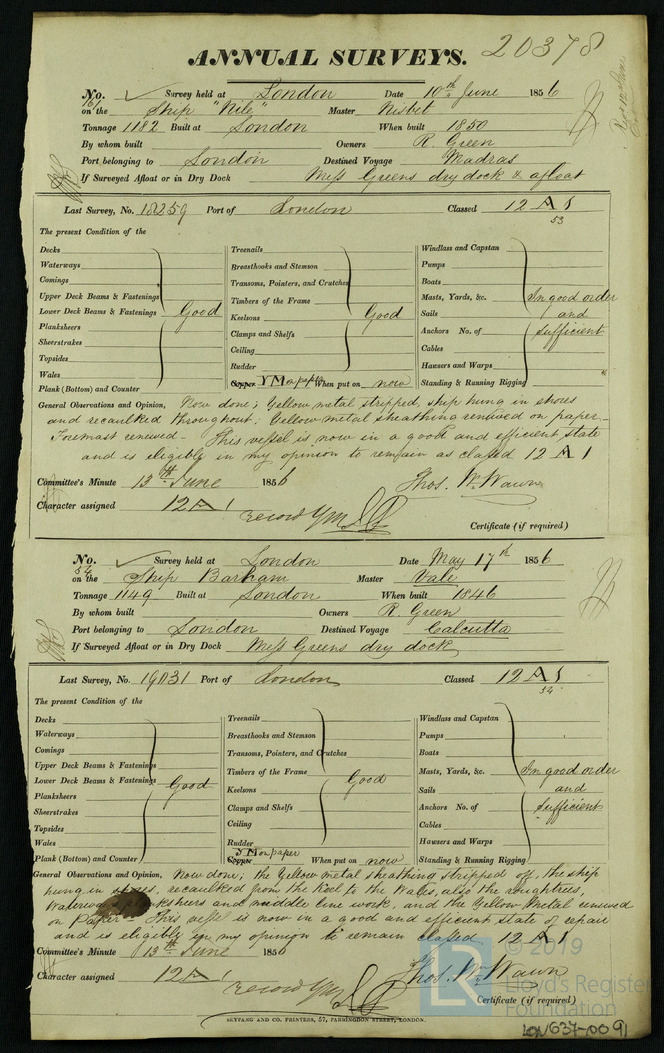 ANNUAL SURVEYS. 20378
No. Survey held at London Date 10th June 1856
on the Ship "Nile" Master Nisbet
Tonnage 1182 Built at London When built 1850
By whom built Owners R. Green
Port belonging to London Destined Voyage Madras
If Surveyed Afloat or in Dry Dock Mess Greens dry dock & afloat
Last Survey, No. 18259 Port of London Classed 12 A 1
53
The present Condition of the
Decks Treenails Windlass and Capstan
Waterways Breasthooks and Stemson Pumps
Comings Transoms, Pointers, and Crutches Boats
Upper Deck Beams & Fastenings Timbers of the Frame Masts, Yards, &c. In good order
Lower Deck Beams & Fastenings Good Keelsons Good Sails and
Planksheers Clamps and Shelfs Anchors No. of sufficient
Sheerstrakes Ceiling Cables
Topsides Rudder Hawsers and Warps
Wales Copper YM on paper When put on now Standing & Running Rigging
Plank (Bottom) and Counter
General Observations and Opinion, Now done; Yellow metal stripped, ship hung in shores
and recaulked throughout; Yellow metal sheathing renewed on paper.
Foremast renewed. This vessel is now in a good and efficient state
and is eligible in my opinion to remain as classed 12 A 1
Committee's Minute 13th June 1856 Thos. Wm. Wawn
Character assigned 12 A 1
record YM
Certificate (if required)
No. Survey held at London Date May 17th 1856
54
on the Ship Barham Master Vale
Tonnage 1149 Built at London When built 1846
By whom built Owners R. Green
Port belonging to London Destined Voyage Calcutta
If Surveyed Afloat or in Dry Dock Mess Greens dry dock
Last Survey, No. 19031 Port of London Classed 12 A 1
54
The present Condition of the
Decks Treenails Windlass and Capstan
Waterways Breasthooks and Stemson Pumps
Comings Transoms, Pointers, and Crutches Boats
Upper Deck Beams & Fastenings Timbers of the Frame Masts, Yards, &c. In good order
Lower Deck Beams & Fastenings Good Keelsons Good Sails and
Planksheers Clamps and Shelfs Anchors No. of sufficient
Sheerstrakes Ceiling Cables
Topsides Rudder Hawsers and Warps
Wales Copper YM on paper When put on now Standing & Running Rigging
Plank (Bottom) and Counter
General Observations and Opinion, Now done; the Yellow metal sheathing stripped off, the ship
hung in shores, recaulked from the Keel to the Wales, also the roughtrees,
Waterways planksheers and middle line work, and the Yellow Metal renewed
on Paper. This vessel is now in a good and efficient state of repair
and is eligible in my opinion to remain classed 12 A 1
Committee's Minute 13th June 1856
Character assigned 12 A 1 Thos. Wm. Wawn
record YM
Certificate (if required)
SEYFANG AND CO. PRINTERS, 57, FARRINGDON STREET, LONDON.
© 2019
LR Lloyd's Register
Foundation
LON637-0091